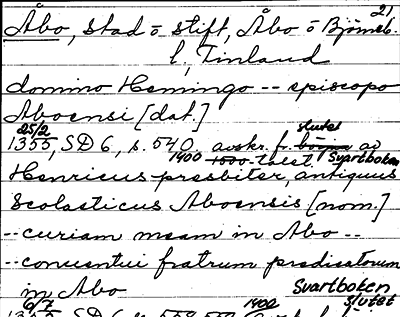 2)
Åbo, stad o stift, Åbo o Björneb.
l, Finland
domino Hemingo -- episcopo
Aboensi [dat.]
25/2 slutet
1355, SD 6, s. 540, avskr. fr. början av
1400 1500-talet, Svartboken
Henricus presbiter, antiquus
Scolasticus Aboensis [nom.]
-- curiam meam in Abo --
-- conuentui fratrum predicatorum
in Abo Svartboken
6/7 1400 slutet